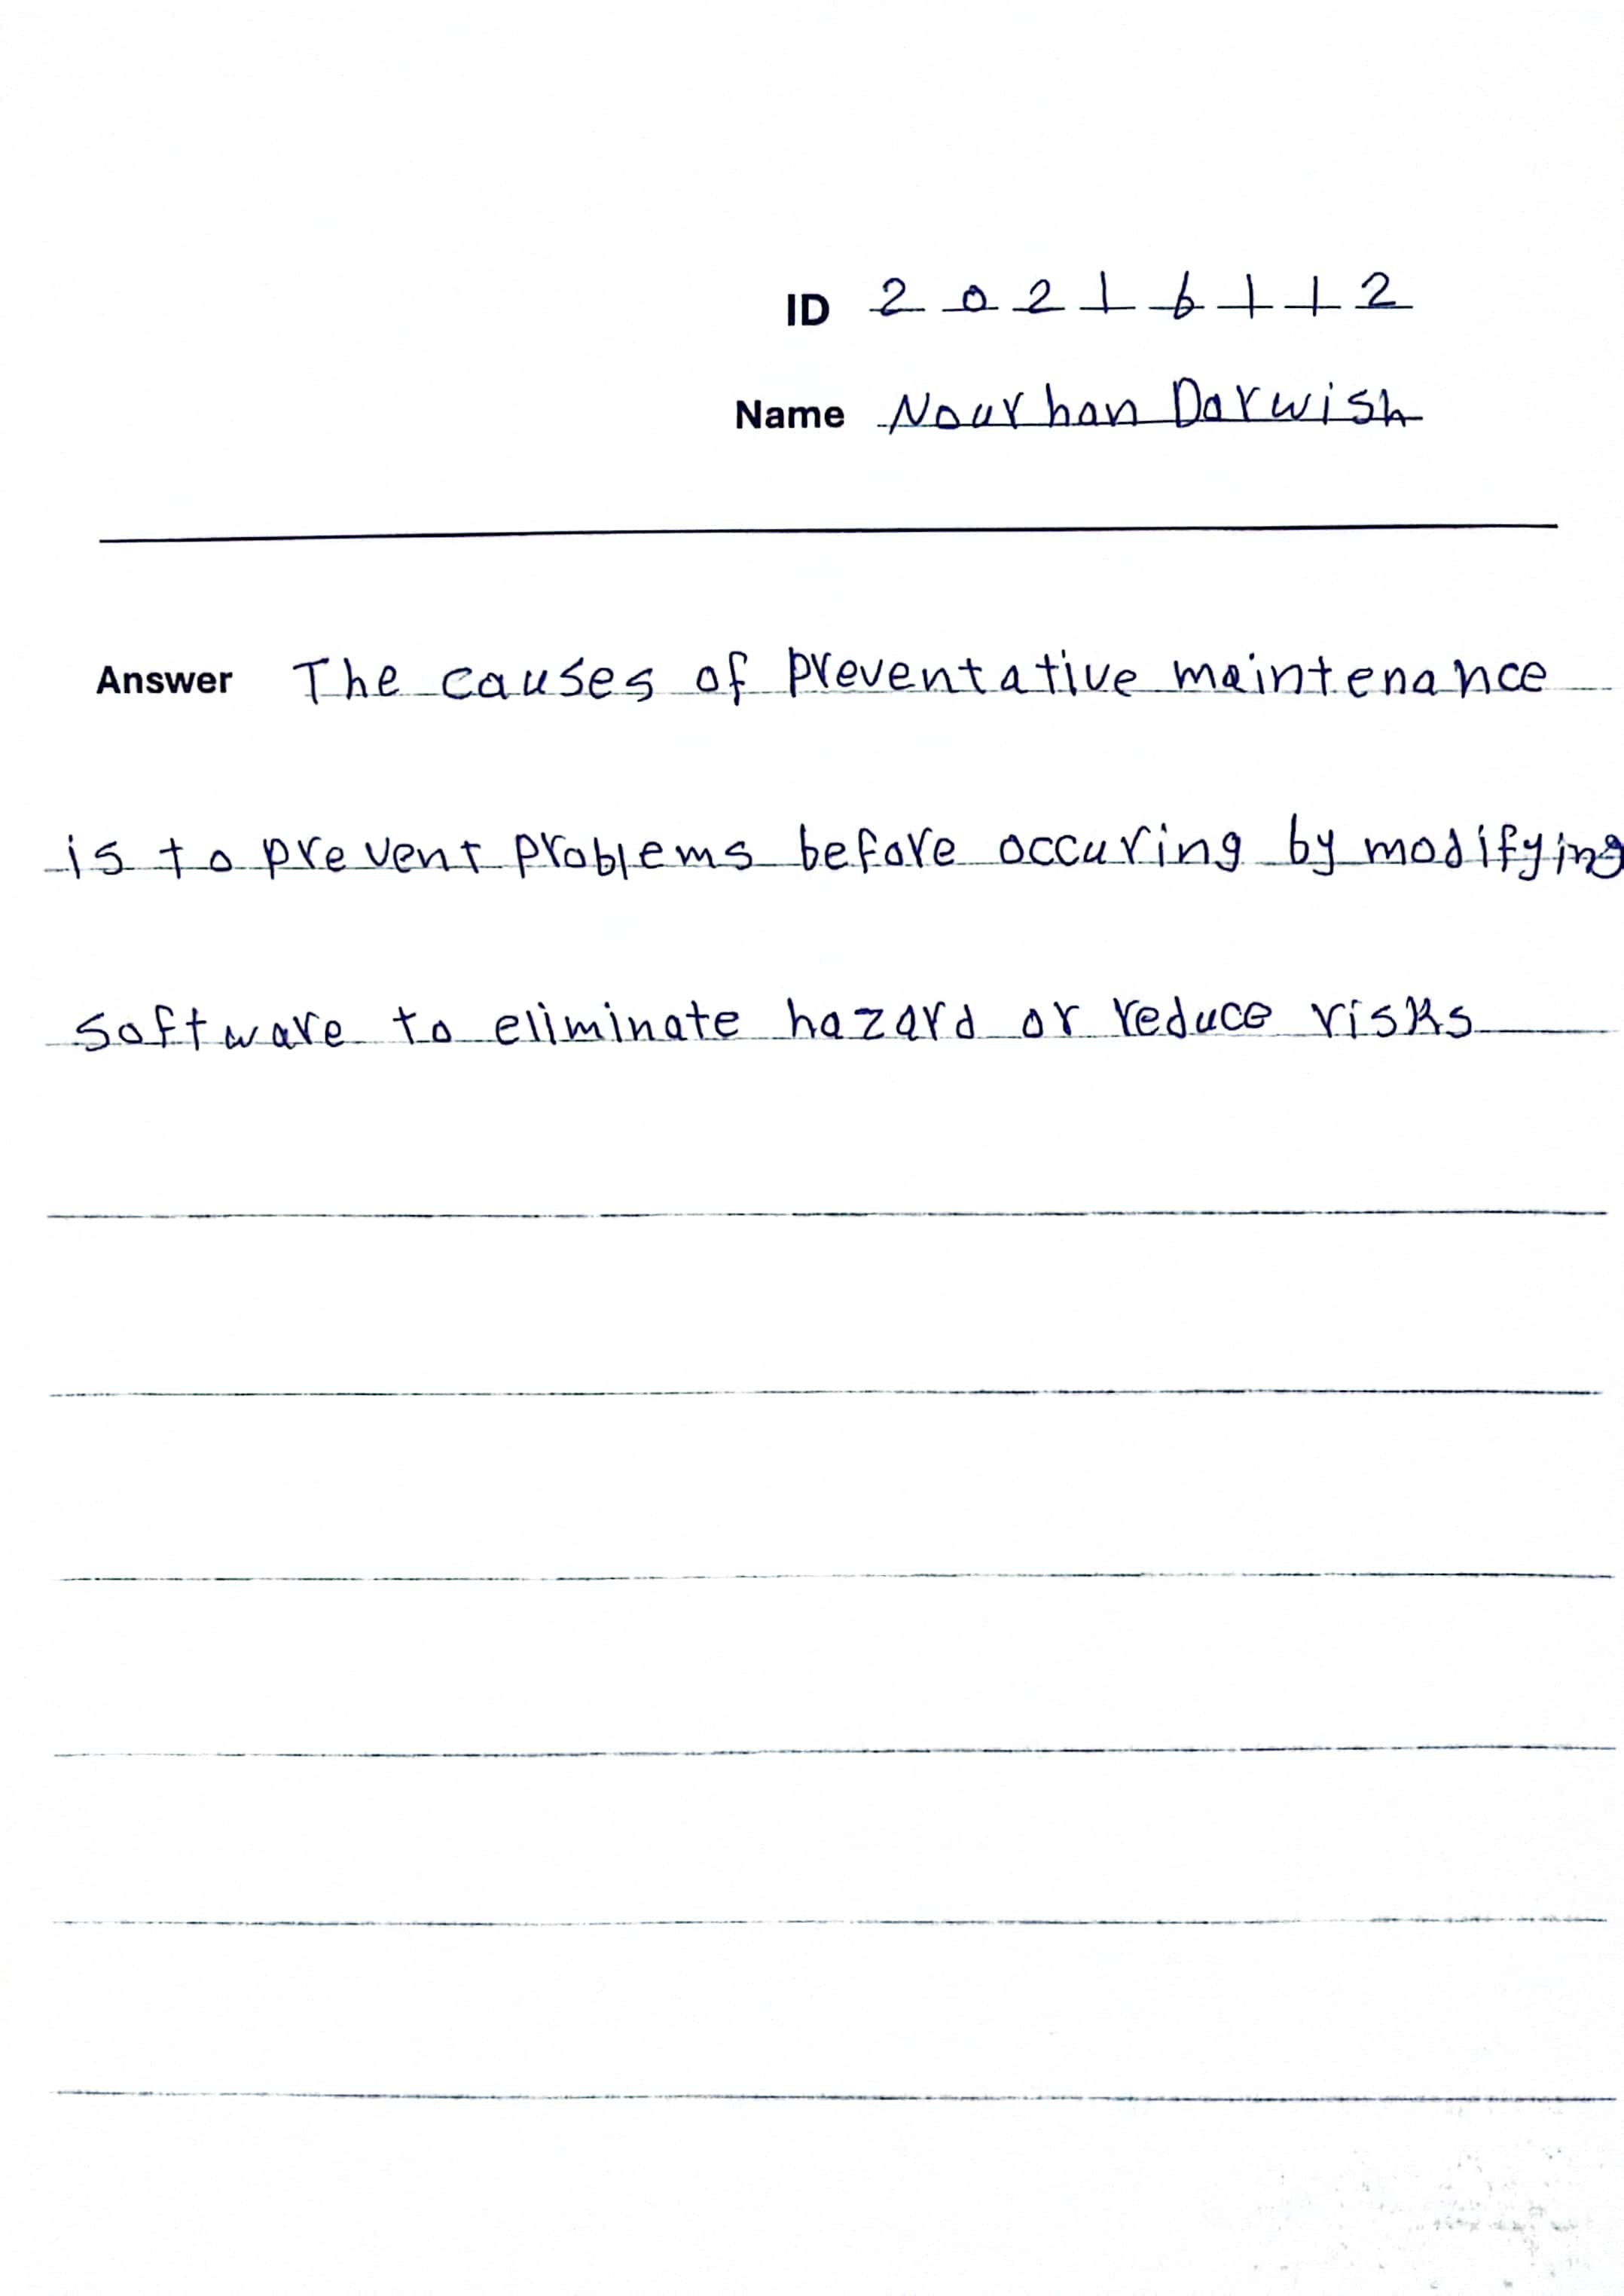 ID 20216112
Name Nourhan Darwish
Answer The causes of preventative maintenance
is to prevent problems before occuring by modifying
software to eliminate hazard or reduce risks